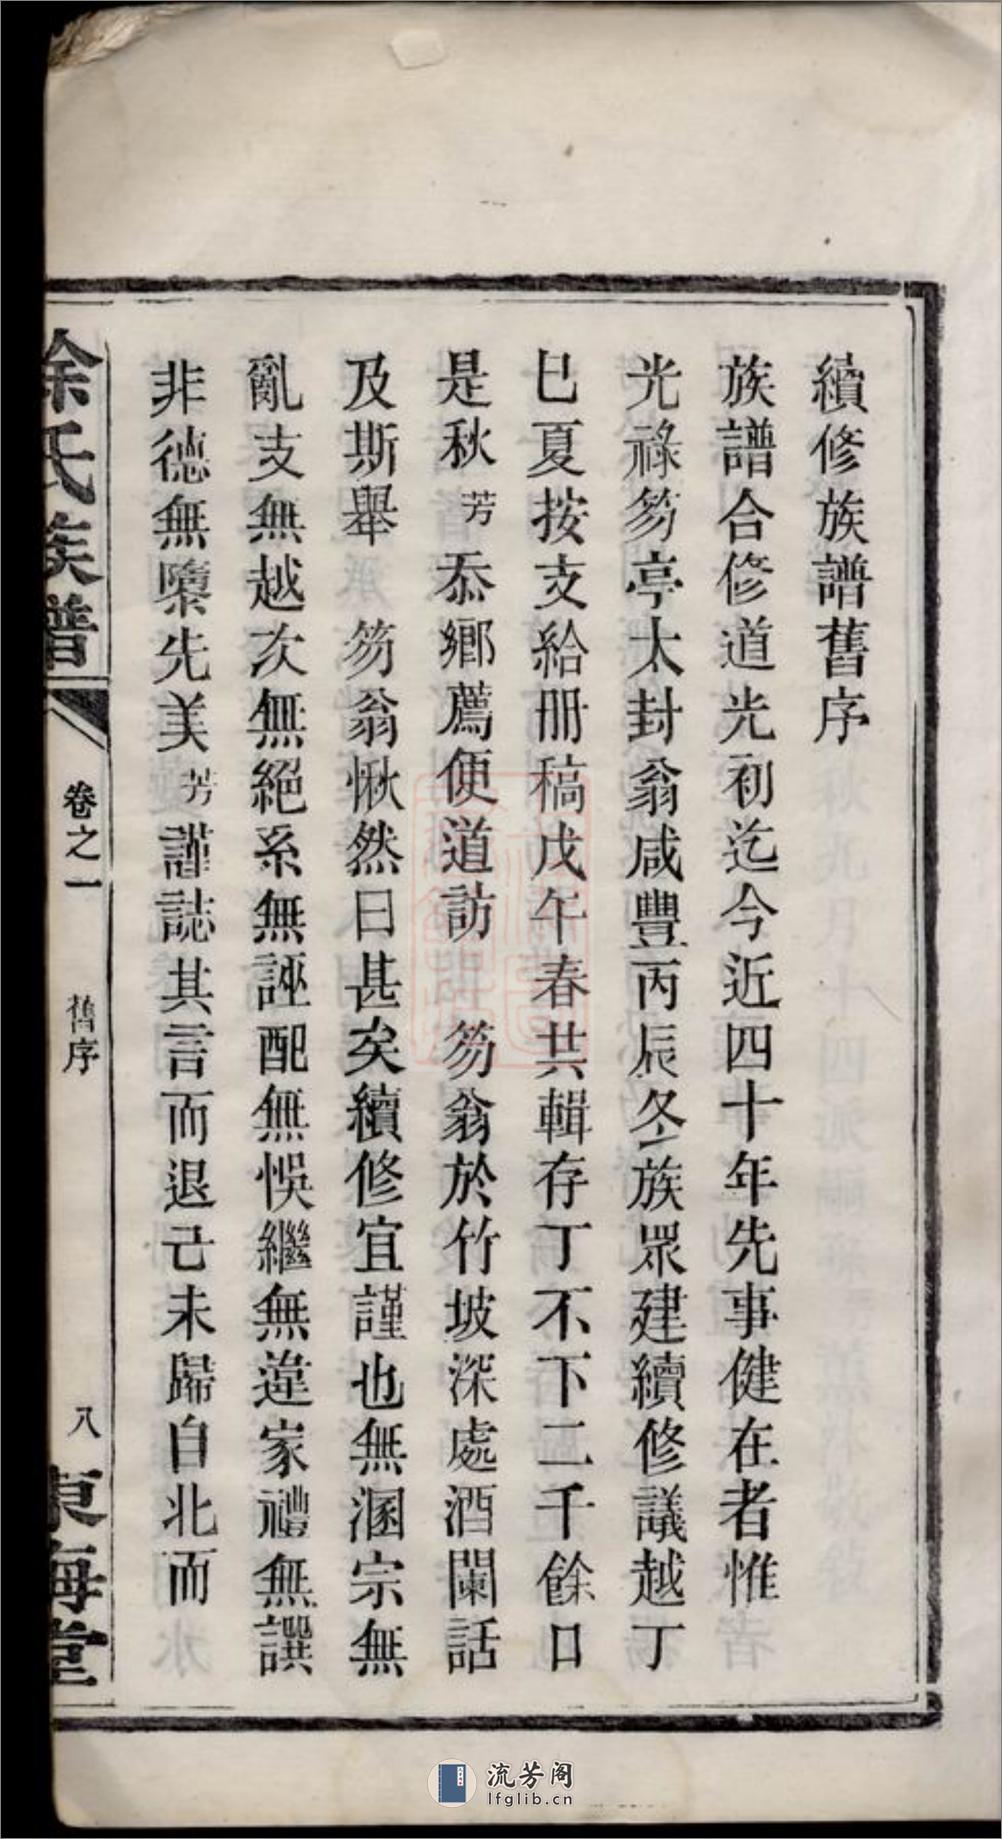 續修族譜舊序
族譜合修道光初迄今近四十年先事健在者惟
光祿笏亭太封翁咸豐丙辰冬族眾建續修議越丁
巳夏按支給冊稿戊午春共輯存丁不下二千餘口
是秋芳忝鄉薦便道訪笏翁於竹坡深處酒闌話
及斯舉笏翁愀然曰甚矣續修宜謹也無溷宗無
亂支無越次無絕系無誣配無悞繼無違家禮無譔
非德無隳先美芳謹誌其言而退己未歸自北而
徐氏族譜
卷之一
舊序
八
東海堂
流芳阁
lfglib.cn